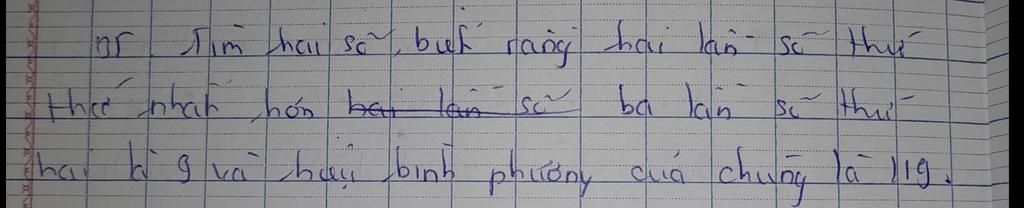 B5 Tìm hai số, biết rằng hai lần số thứ
thứ nhất hơn hai lần số ba lần số thứ
hai là 9 và hiệu bình phương của chúng là 119.